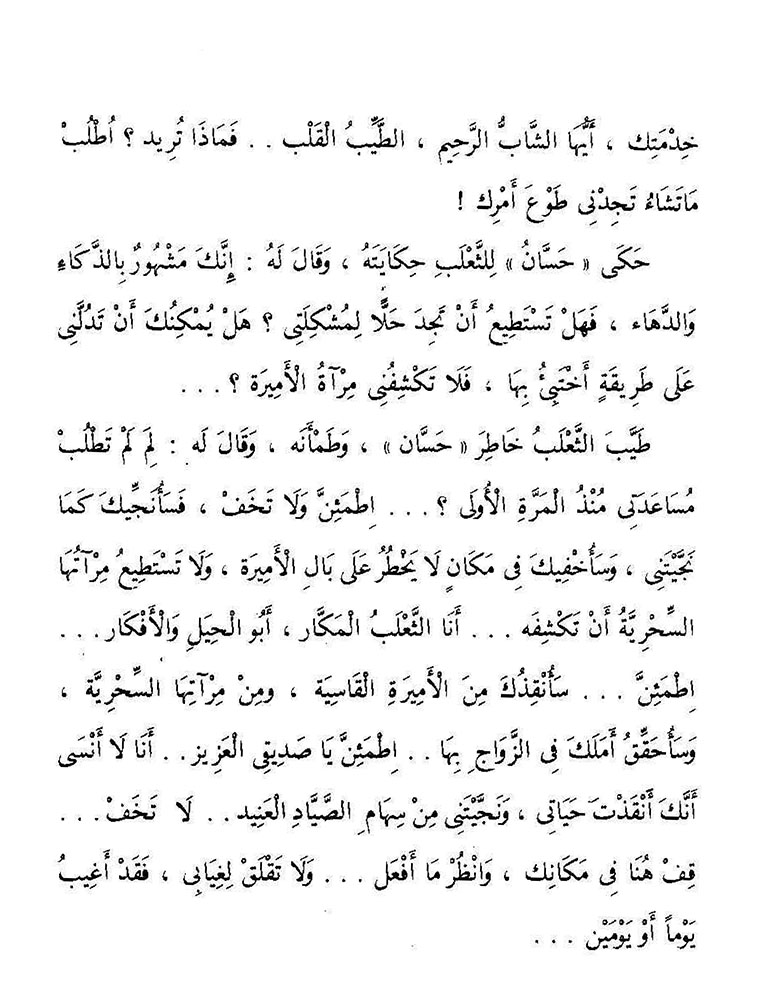 خِدْمَتِك ، أَيُّهَا الشَّابُّ الرَّحِيم ، الطَّيِّبُ الْقَلْب . . فَمَاذَا تُرِيد ؟ اُطْلُبْ
مَاتَشَاءُ تَجِدْنِى طَوْعَ أَمْرِك !
حَكَى « حَسَّانُ » لِلثَّعْلَبِ حِكَايَتَهُ ، وَقَالَ لَهُ : إِنَّكَ مَشْهُورٌ بِالذَّكَاءِ
وَالدَّهَاء ، فَهَلْ تَسْتَطِيعُ أَنْ تَجِدَ حَلًّا لِمُشْكِلَتِى ؟ هَلْ يُمْكِنُكَ أَنْ تَدُلَّنِى
عَلَى طَرِيقَةٍ أَخْتَبِئُ بِهَا ، فَلَا تَكْشِفُنِى مِرْآةُ الْأَمِيرَة ؟ . . .
طَيَّبَ الثَّعْلَبُ خَاطِرَ « حَسَّان » ، وَطَمْأَنَه ، وَقَالَ لَه : لِمَ لَمْ تَطْلُبْ
مُسَاعَدَتِى مُنْذُ الْمَرَّةِ الْأُولَى ؟ . . . اِطْمَئِنَّ وَلَا تَخَفْ ، فَسَأُنَجِّيكَ كَمَا
نَجَّيْتَنِى ، وَسَأُخْفِيكَ فِى مَكَانٍ لَا يَخْطُرُ عَلَى بَالِ الْأَمِيرَة ، وَلَا تَسْتَطِيعُ مِرْآتُهَا
السِّحْرِيَّةُ أَنْ تَكْشِفَه . . . أَنَا الثَّعْلَبُ الْمَكَّار ، أَبُو الْحِيَلِ وَالْأَفْكَار . . .
اِطْمَئِنَّ . . . سَأُنْقِذُكَ مِنَ الْأَمِيرَةِ الْقَاسِيَة ، وَمِنْ مِرْآتِهَا السِّحْرِيَّة ،
وَسَأُحَقِّقُ أَمَلَكَ فِى الزَّوَاجِ بِهَا . . اِطْمَئِنَّ يَا صَدِيقِى الْعَزِيز . . أَنَا لَا أَنْسَى
أَنَّكَ أَنْقَذْتَ حَيَاتِى ، وَنَجَّيْتَنِى مِنْ سِهَامِ الصَّيَّادِ الْعَنِيد . . لَا تَخَفْ . . .
قِفْ هُنَا فِى مَكَانِك ، وَانْظُرْ مَا أَفْعَل . . . وَلَا تَقْلَقْ لِغِيَابِى ، فَقَدْ أَغِيبُ
يَوْماً أَوْ يَوْمَيْن . . .